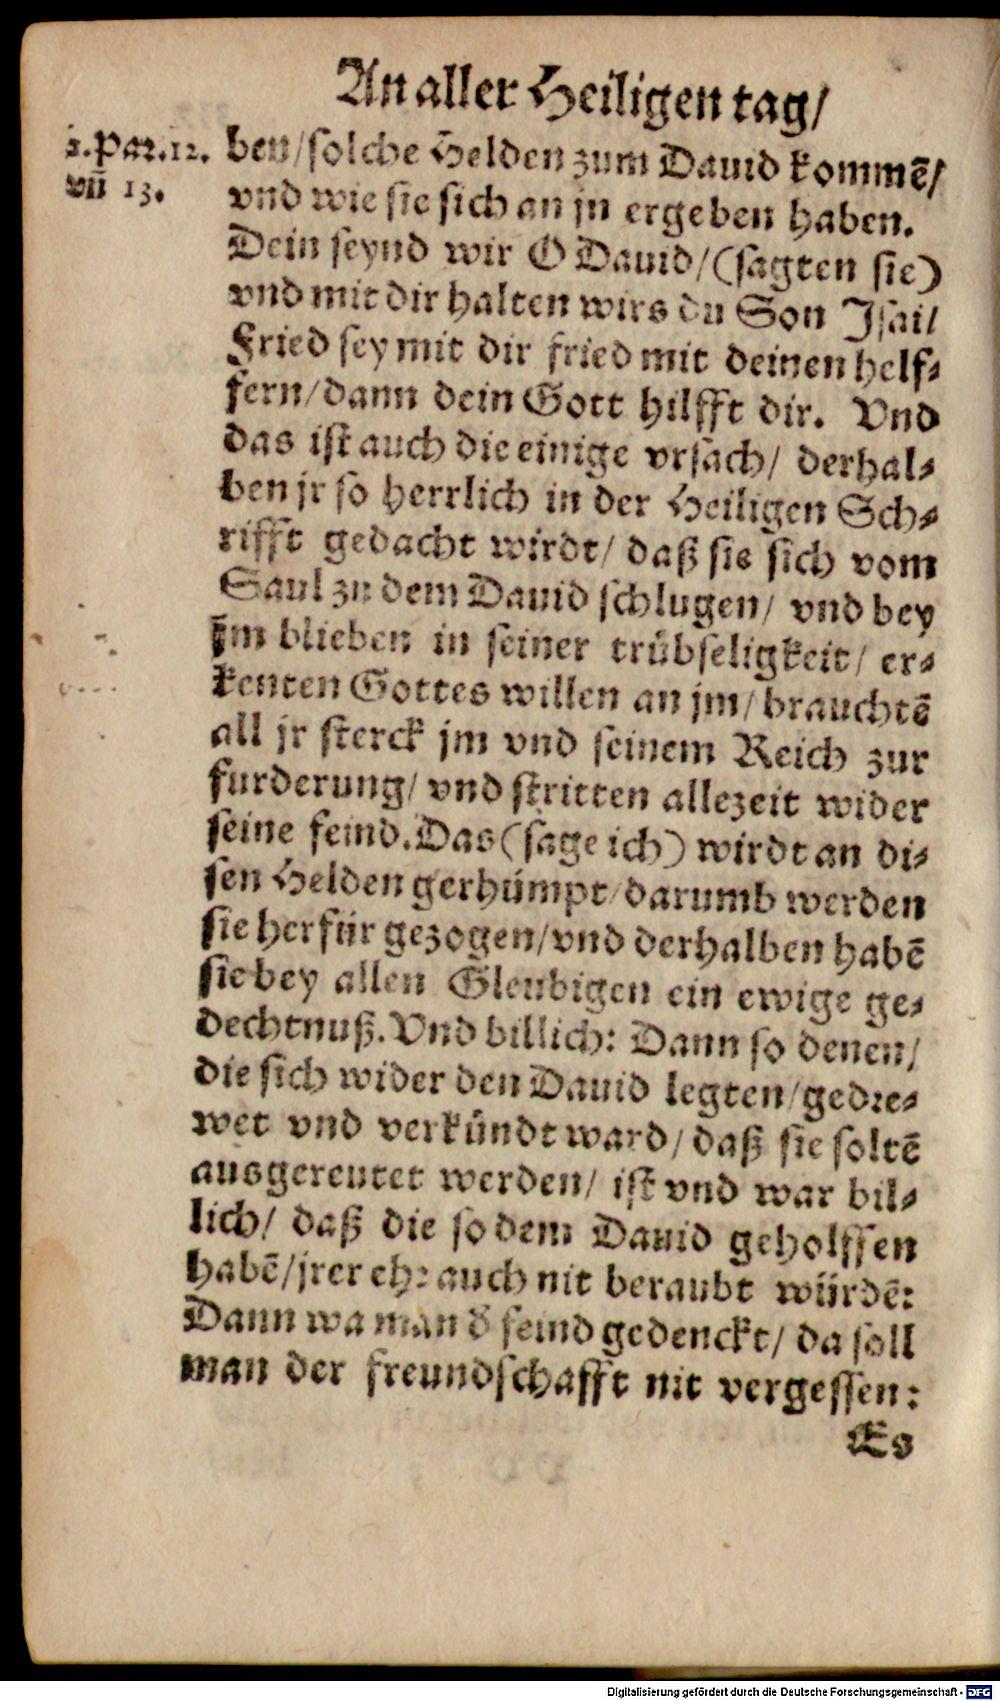 An aller Heiligen tag/
1. Par. 12.
vñ 13.
ben/ solche Helden zum Dauid kommẽ/
vnd wie sie sich an jn ergeben haben.
Dein seynd wir O Dauid/ (sagten sie)
vnd mit dir halten wirs du Son Isai/
Fried sey mit dir fried mit deinen helf⸗
fern/ dann dein Gott hilfft dir. Vnd
das ist auch die einige vrsach/ derhal⸗
ben jr so herrlich in der Heiligen Sch⸗
rifft gedacht wirdt/ daß sie sich vom
Saul zu dem Dauid schlugen/ vnd bey
jm blieben in seiner trübseligkeit/ er⸗
kenten Gottes willen an jm/ brauchtẽ
all jr sterck jm vnd seinem Reich zur
furderung/ vnd stritten allezeit wider
seine feind. Das (sage ich) wirdt an di⸗
sen Helden gerhümpt/ darumb werden
sie herfür gezogen/ vnd derhalben habẽ
sie bey allen Gleubigen ein ewige ge⸗
dechtnuß. Vnd billich: Dann so denen/
die sich wider den Dauid legten/ gedre⸗
wet vnd verkündt ward/ daß sie soltẽ
ausgereutet werden/ ist vnd war bil⸗
lich/ daß die so dem Dauid geholffen
habẽ/ jrer ehr auch nit beraubt würdẽ:
Dann wa man d̃ feind gedenckt/ da soll
man der freundschafft nit vergessen:
Es
Digitalisierung gefördert durch die Deutsche Forschungsgemeinschaft - DFG